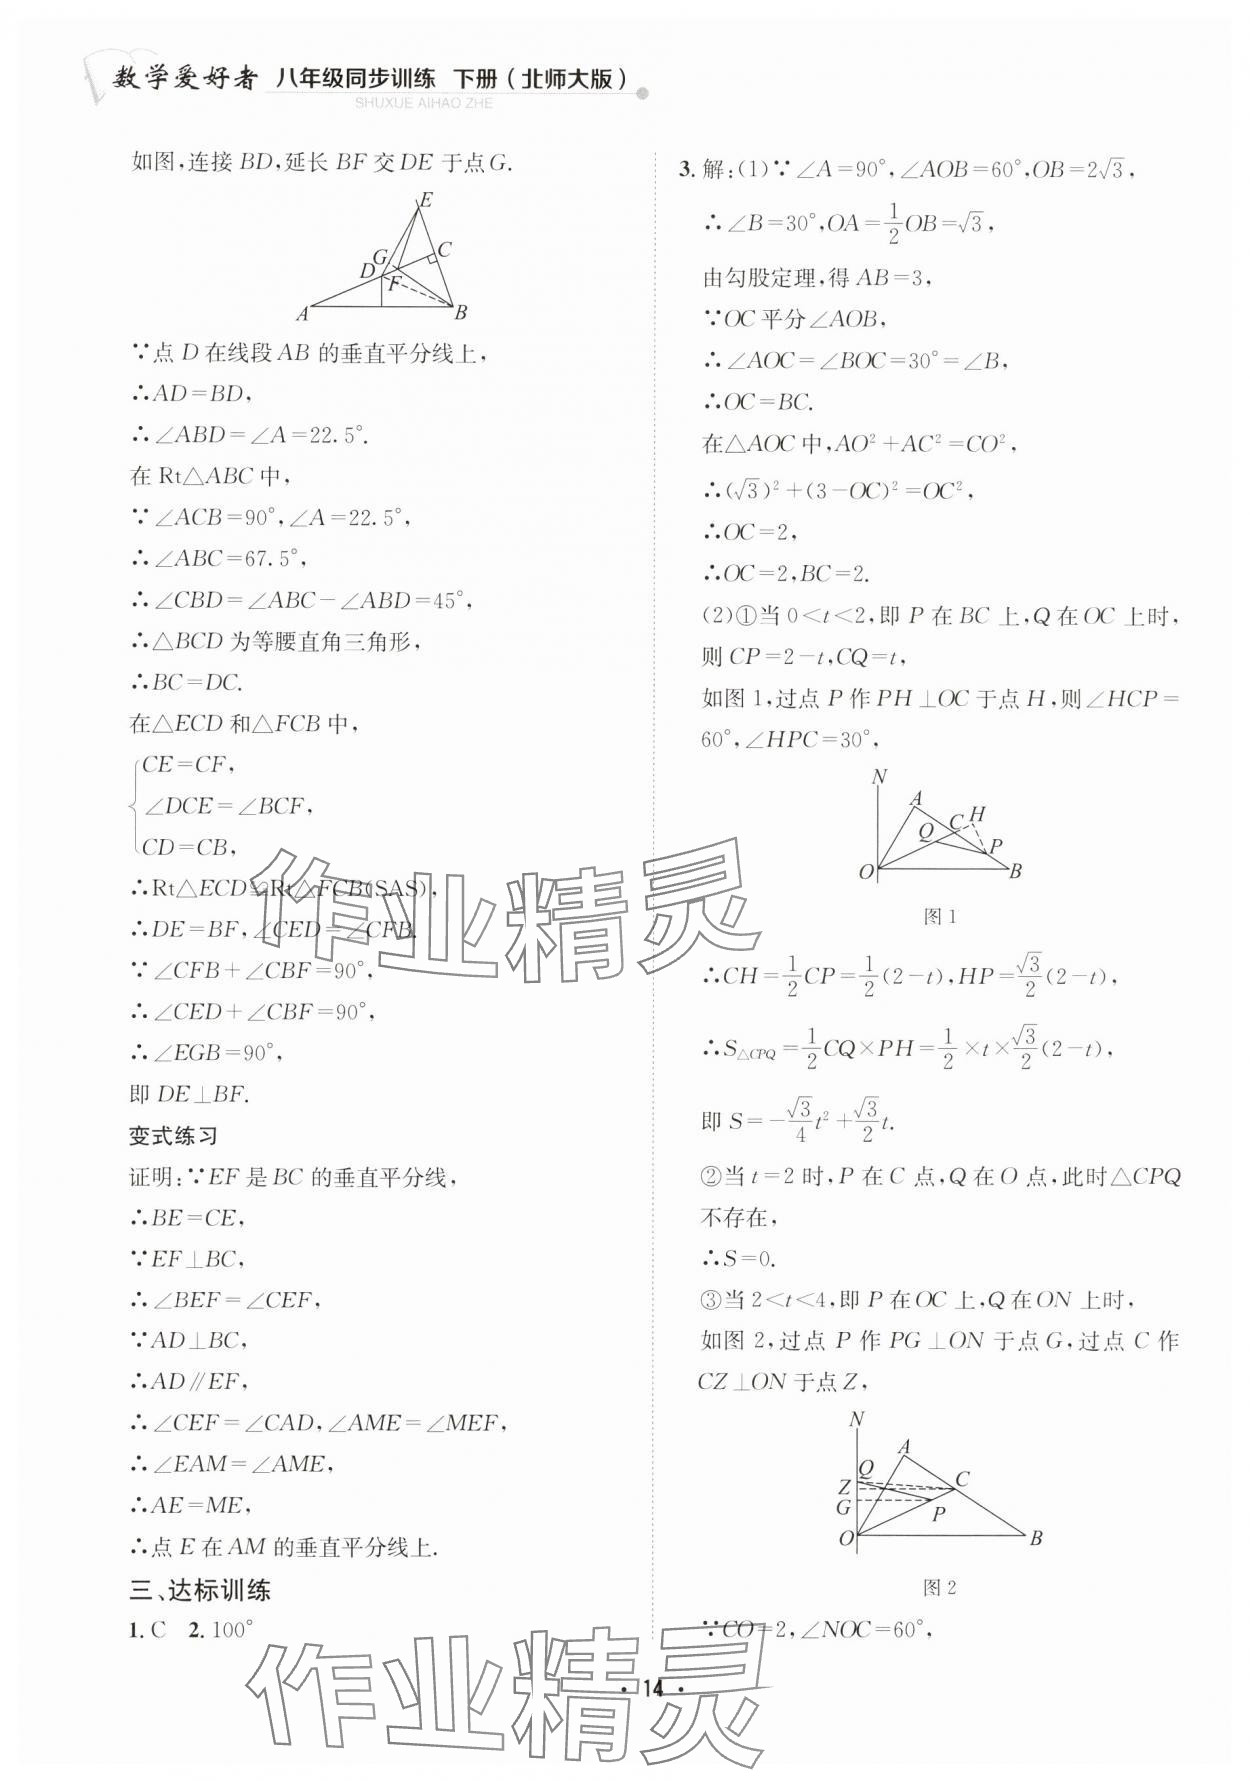 数学爱好者 八年级同步训练 下册(北师大版)
SHUXUE AIHAO ZHE
如图,连接BD,延长BF交DE于点G.
E
G
C
D
F
A
B
∵点D在线段AB的垂直平分线上,
∴AD=BD,
∴∠ABD=∠A=22.5°.
在Rt△ABC中,
∵∠ACB=90°,∠A=22.5°,
∴∠ABC=67.5°,
∴∠CBD=∠ABC-∠ABD=45°,
∴△BCD为等腰直角三角形,
∴BC=DC.
在△ECD和△FCB中,
CE=CF,
∠DCE=∠BCF,
CD=CB,
∴Rt△ECD≌Rt△FCB(SAS),
∴DE=BF,∠CED=∠CFB.
∵∠CFB+∠CBF=90°,
∴∠CED+∠CBF=90°,
∴∠EGB=90°,
即DE⊥BF.
变式练习
证明:∵EF是BC的垂直平分线,
∴BE=CE,
∵EF⊥BC,
∴∠BEF=∠CEF,
∵AD⊥BC,
∴AD∥EF,
∴∠CEF=∠CAD,∠AME=∠MEF,
∴∠EAM=∠AME,
∴AE=ME,
∴点E在AM的垂直平分线上.
三、达标训练
1. C 2. 100°
3. 解:(1)∵∠A=90°,∠AOB=60°,OB=2√3,
∴∠B=30°,OA=1/2OB=√3,
由勾股定理,得AB=3,
∵OC平分∠AOB,
∴∠AOC=∠BOC=30°=∠B,
∴OC=BC.
在△AOC中,AO²+AC²=CO²,
∴(√3)²+(3-OC)²=OC²,
∴OC=2,
∴OC=2,BC=2.
(2)①当0<t<2,即P在BC上,Q在OC上时,
则CP=2-t,CQ=t,
如图1,过点P作PH⊥OC于点H,则∠HCP=
60°,∠HPC=30°,
N
A
H
C
Q
P
O
B
图1
∴CH=1/2CP=1/2(2-t),HP=√3/2(2-t),
∴S△CPQ=1/2CQ×PH=1/2×t×√3/2(2-t),
即S=-√3/4t²+√3/2t.
②当t=2时,P在C点,Q在O点,此时△CPQ
不存在,
∴S=0.
③当2<t<4,即P在OC上,Q在ON上时,
如图2,过点P作PG⊥ON于点G,过点C作
CZ⊥ON于点Z,
N
A
Q
Z
C
G
P
O
B
图2
∵CO=2,∠NOC=60°,
作业精灵
作业精灵
· 14 ·